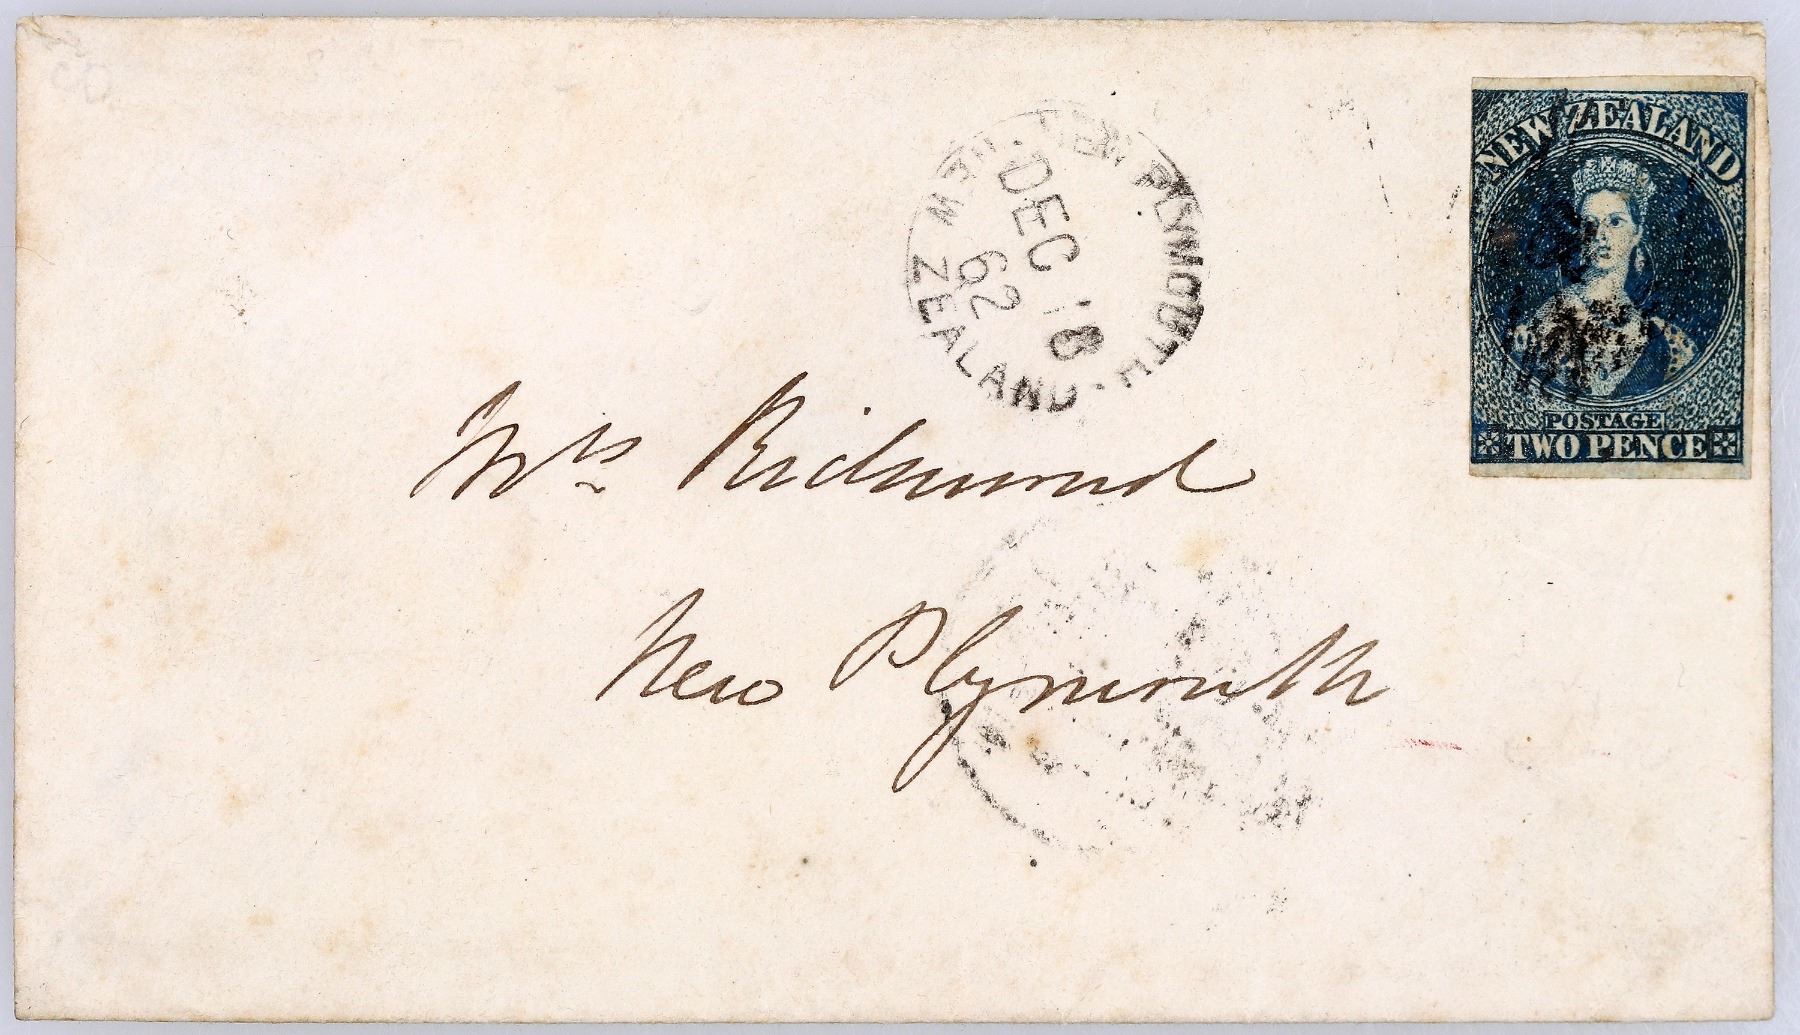 NEW ZEALAND
POSTAGE
TWO PENCE
NEW PLYMOUTH
DEC 18
62
NEW ZEALAND
Mrs Richmond
New Plymouth